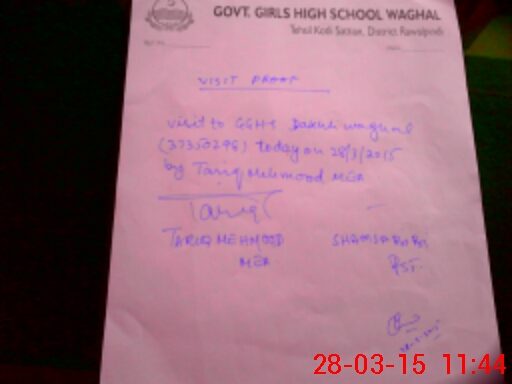 GOVT. GIRLS HIGH SCHOOL WAGHAL
Tehsil Kotli Sattian, District Rawalpindi
VISIT PROOF
visit to GGHS waghal
(37350296) today on 28/3/2015
by Tariq Mehmood MEA
Tariq
TARIQ MEHMOOD
MEA
SHAMSA
PST
28-03-15 11:44